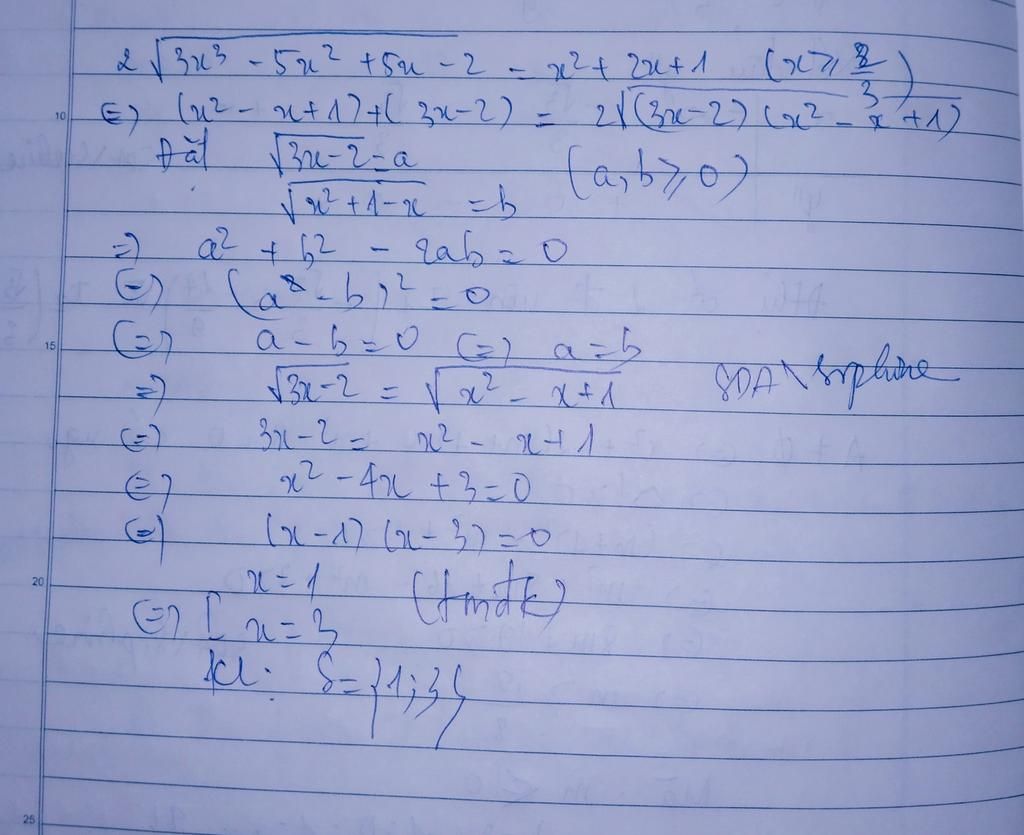 2√(3x³ - 5x² + 5x - 2) = x² + 2x + 1 (x ≥ 2/3)
10 ⇔ (x² - x + 1) + (3x - 2) = 2√((3x - 2)(x² - x + 1))
Đặt √(3x-2) = a
√(x² + 1 - x) = b (a, b ≥ 0)
⇒ a² + b² - 2ab = 0
⇔ (a - b)² = 0
15 ⇔ a - b = 0 ⇔ a = b
⇒ √(3x-2) = √(x² - x + 1)
⇔ 3x - 2 = x² - x + 1
⇔ x² - 4x + 3 = 0
⇔ (x - 1)(x - 3) = 0
20 ⇔ [ x = 1
x = 3 (tmđk)
KL: S = {1; 3}
25